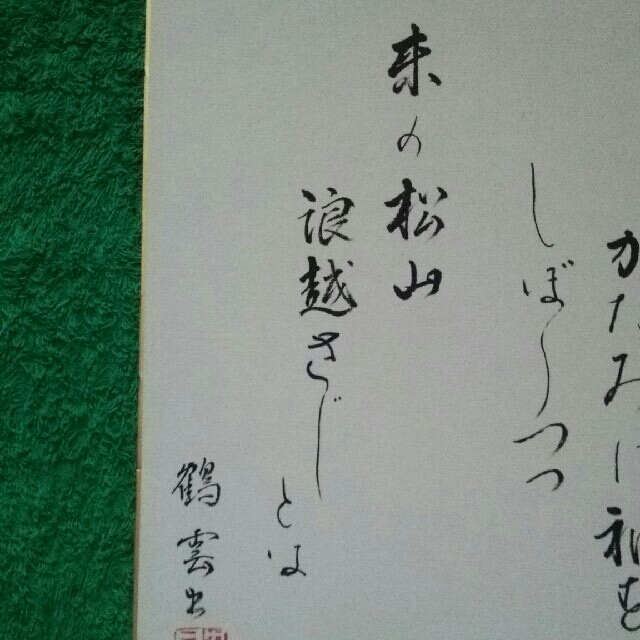 かたみに袖を
しぼりつつ
末の松山
浪越さじ
とは
鶴雲書